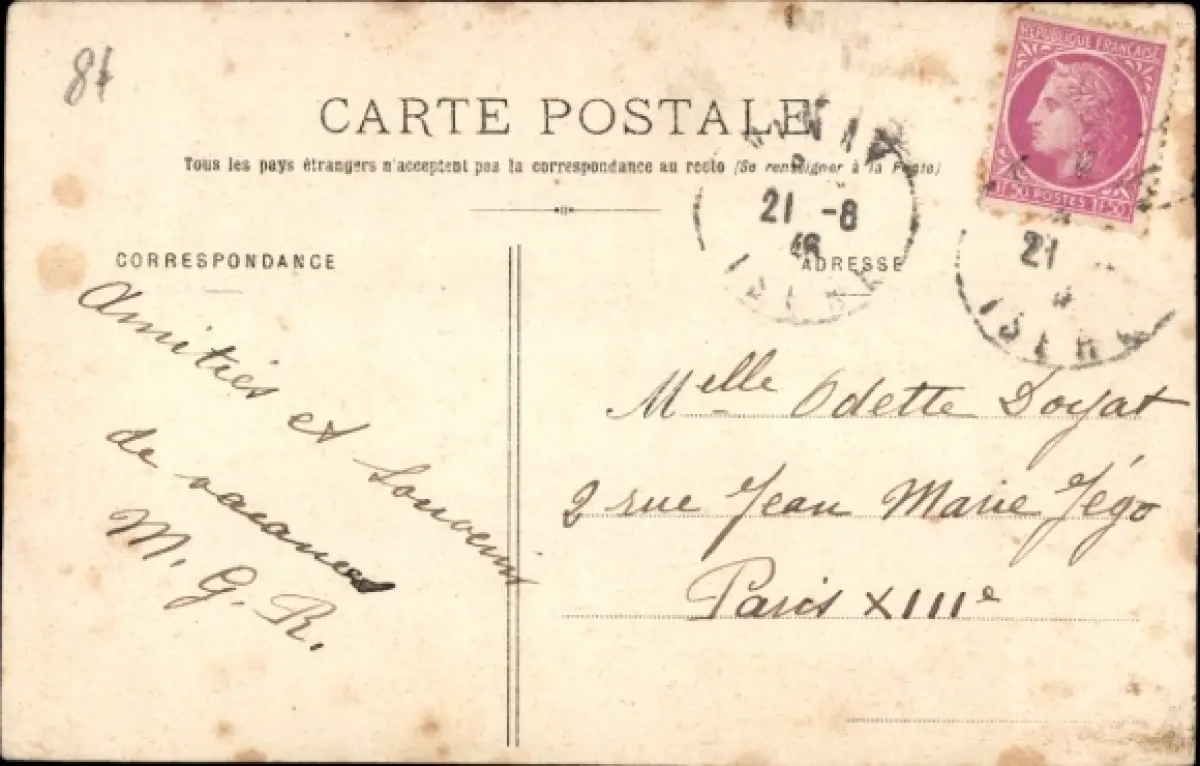 CARTE POSTALE
Tous les pays étrangers n'acceptent pas la correspondance au recto (Se renseigner à la Poste)
RÉPUBLIQUE FRANÇAISE
1F50 POSTES 1F50
21 -8
46
21
ISÈRE
CORRESPONDANCE
ADRESSE
Amitiés et souvenir
de vacances
M. G. R.
Melle Odette Doyat
2 rue Jean Marie Jégo
Paris XIIIe